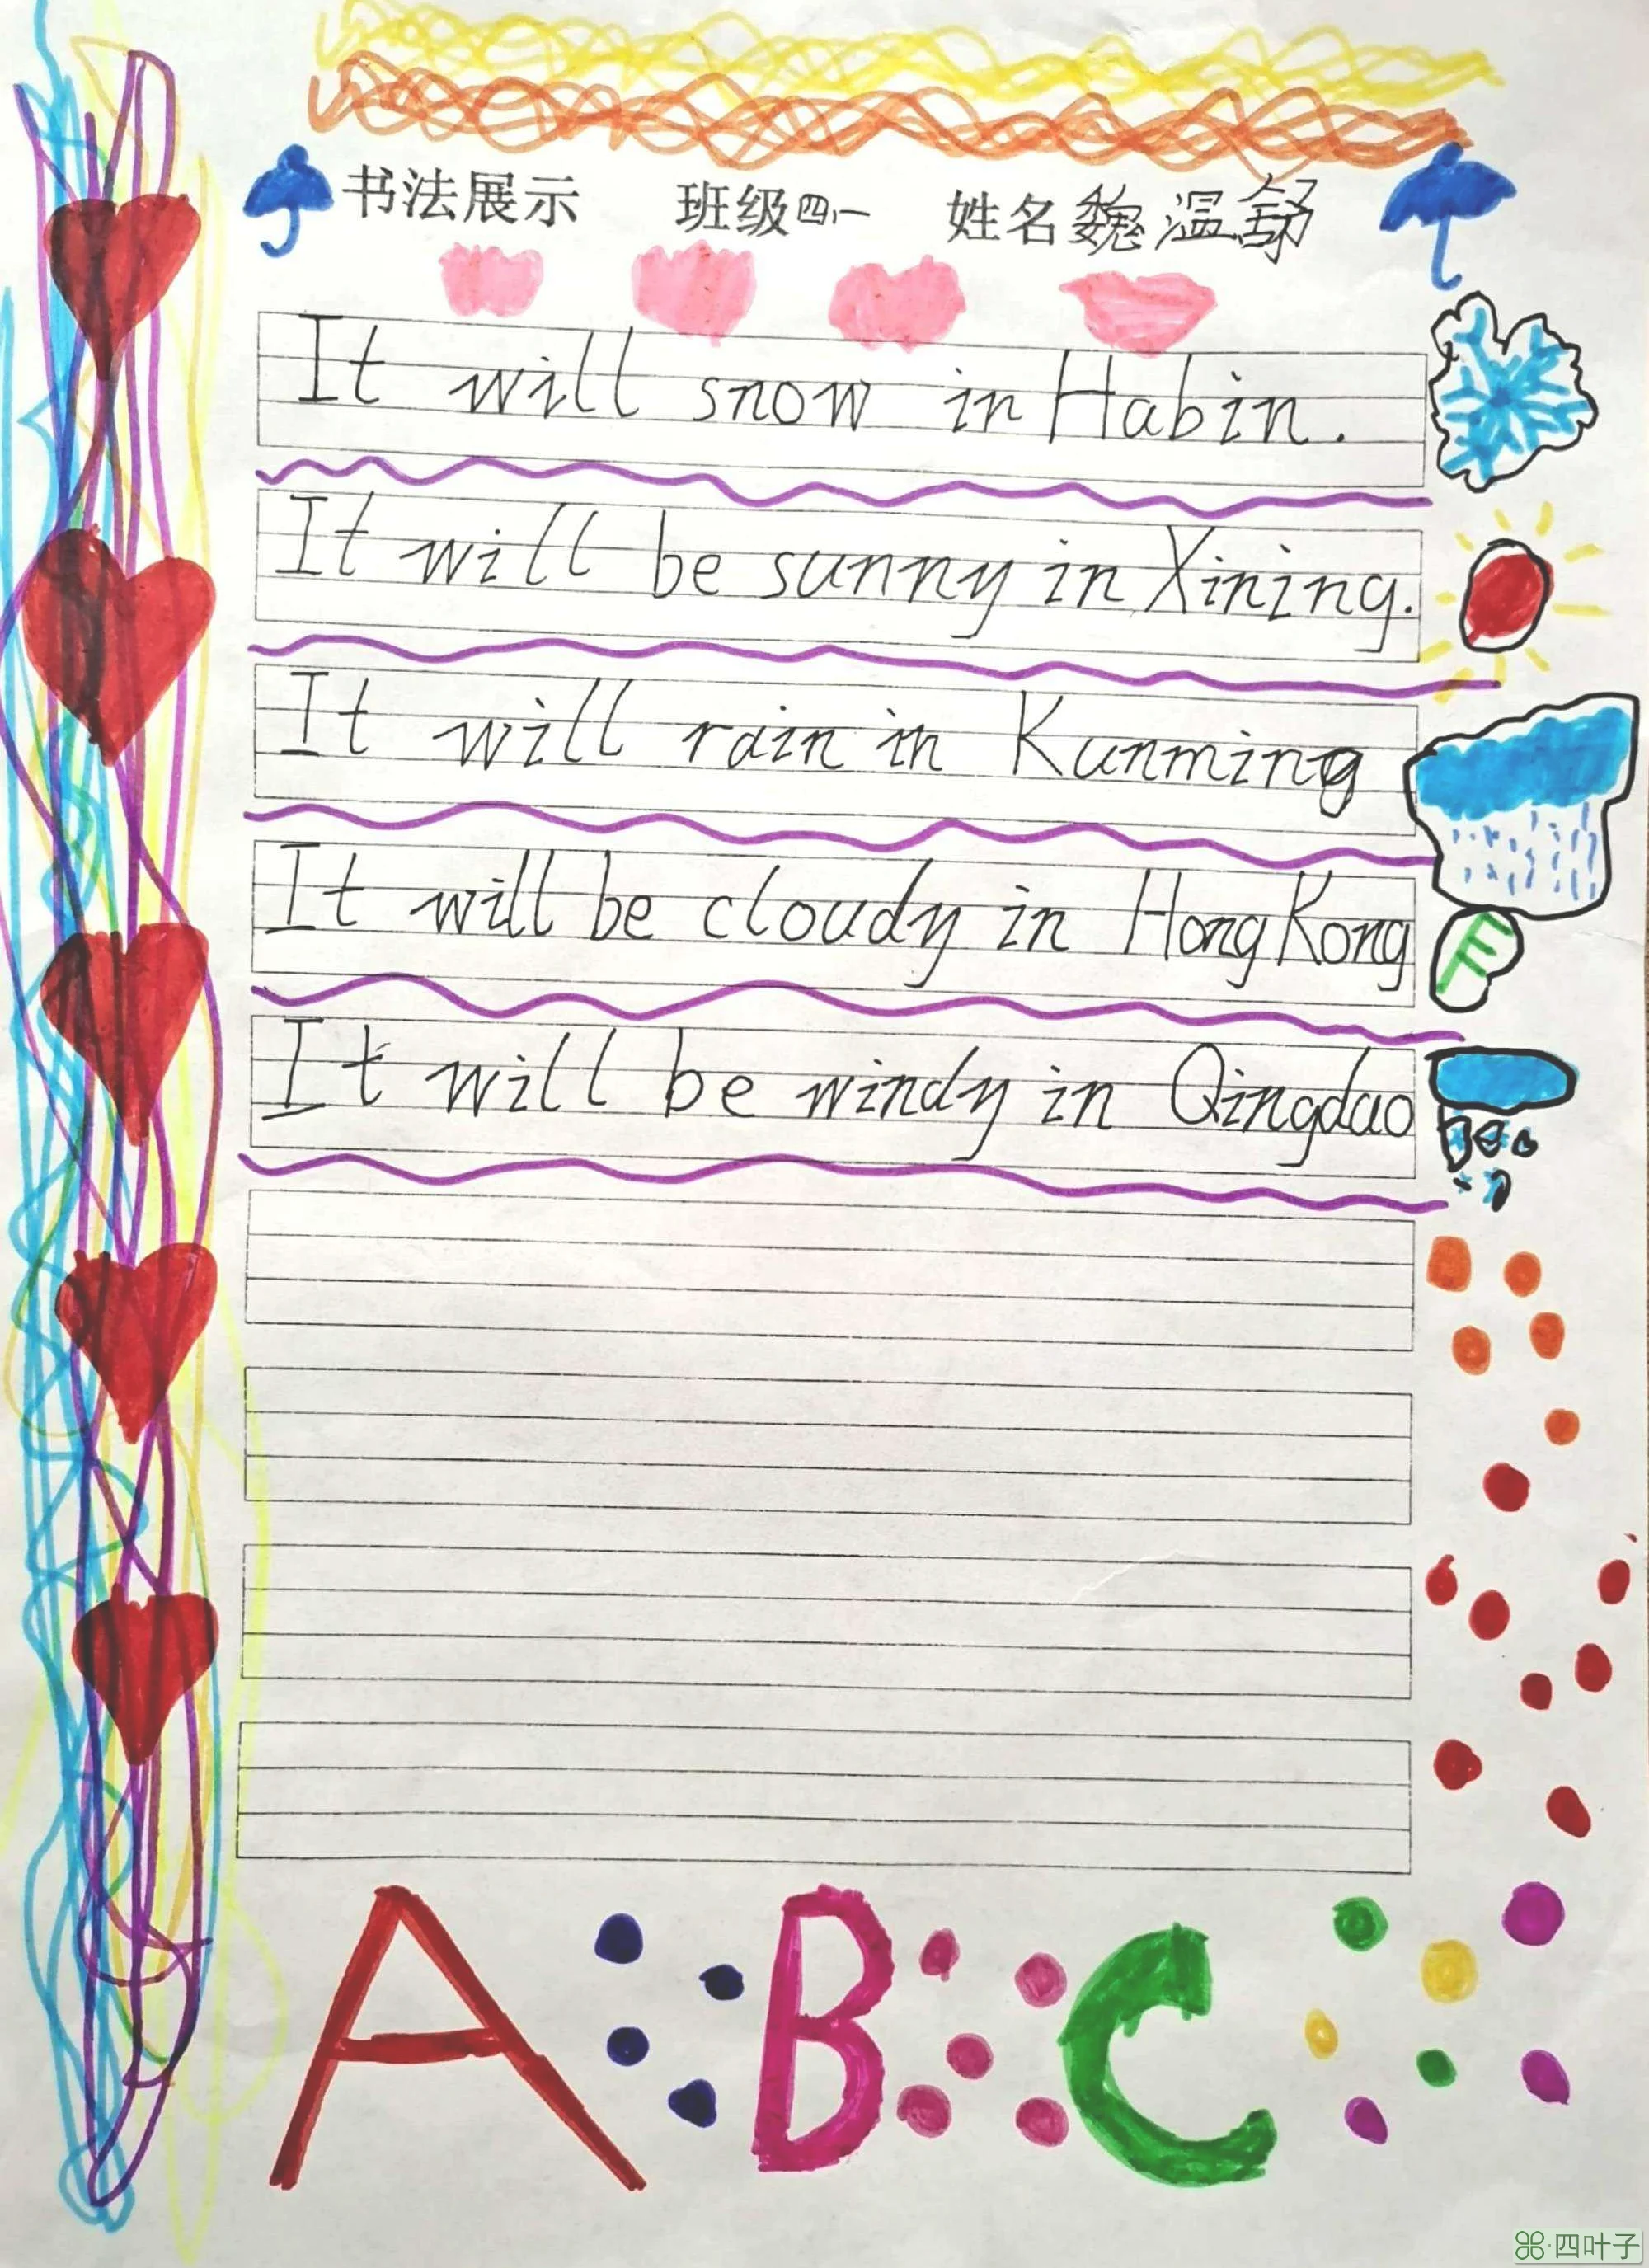 书法展示 班级四,一 姓名魏温舒
It will snow in Habin.
It will be sunny in Xining.
It will rain in Kunming
It will be cloudy in Hong Kong
It will be windy in Qingdao
A B C
四叶子